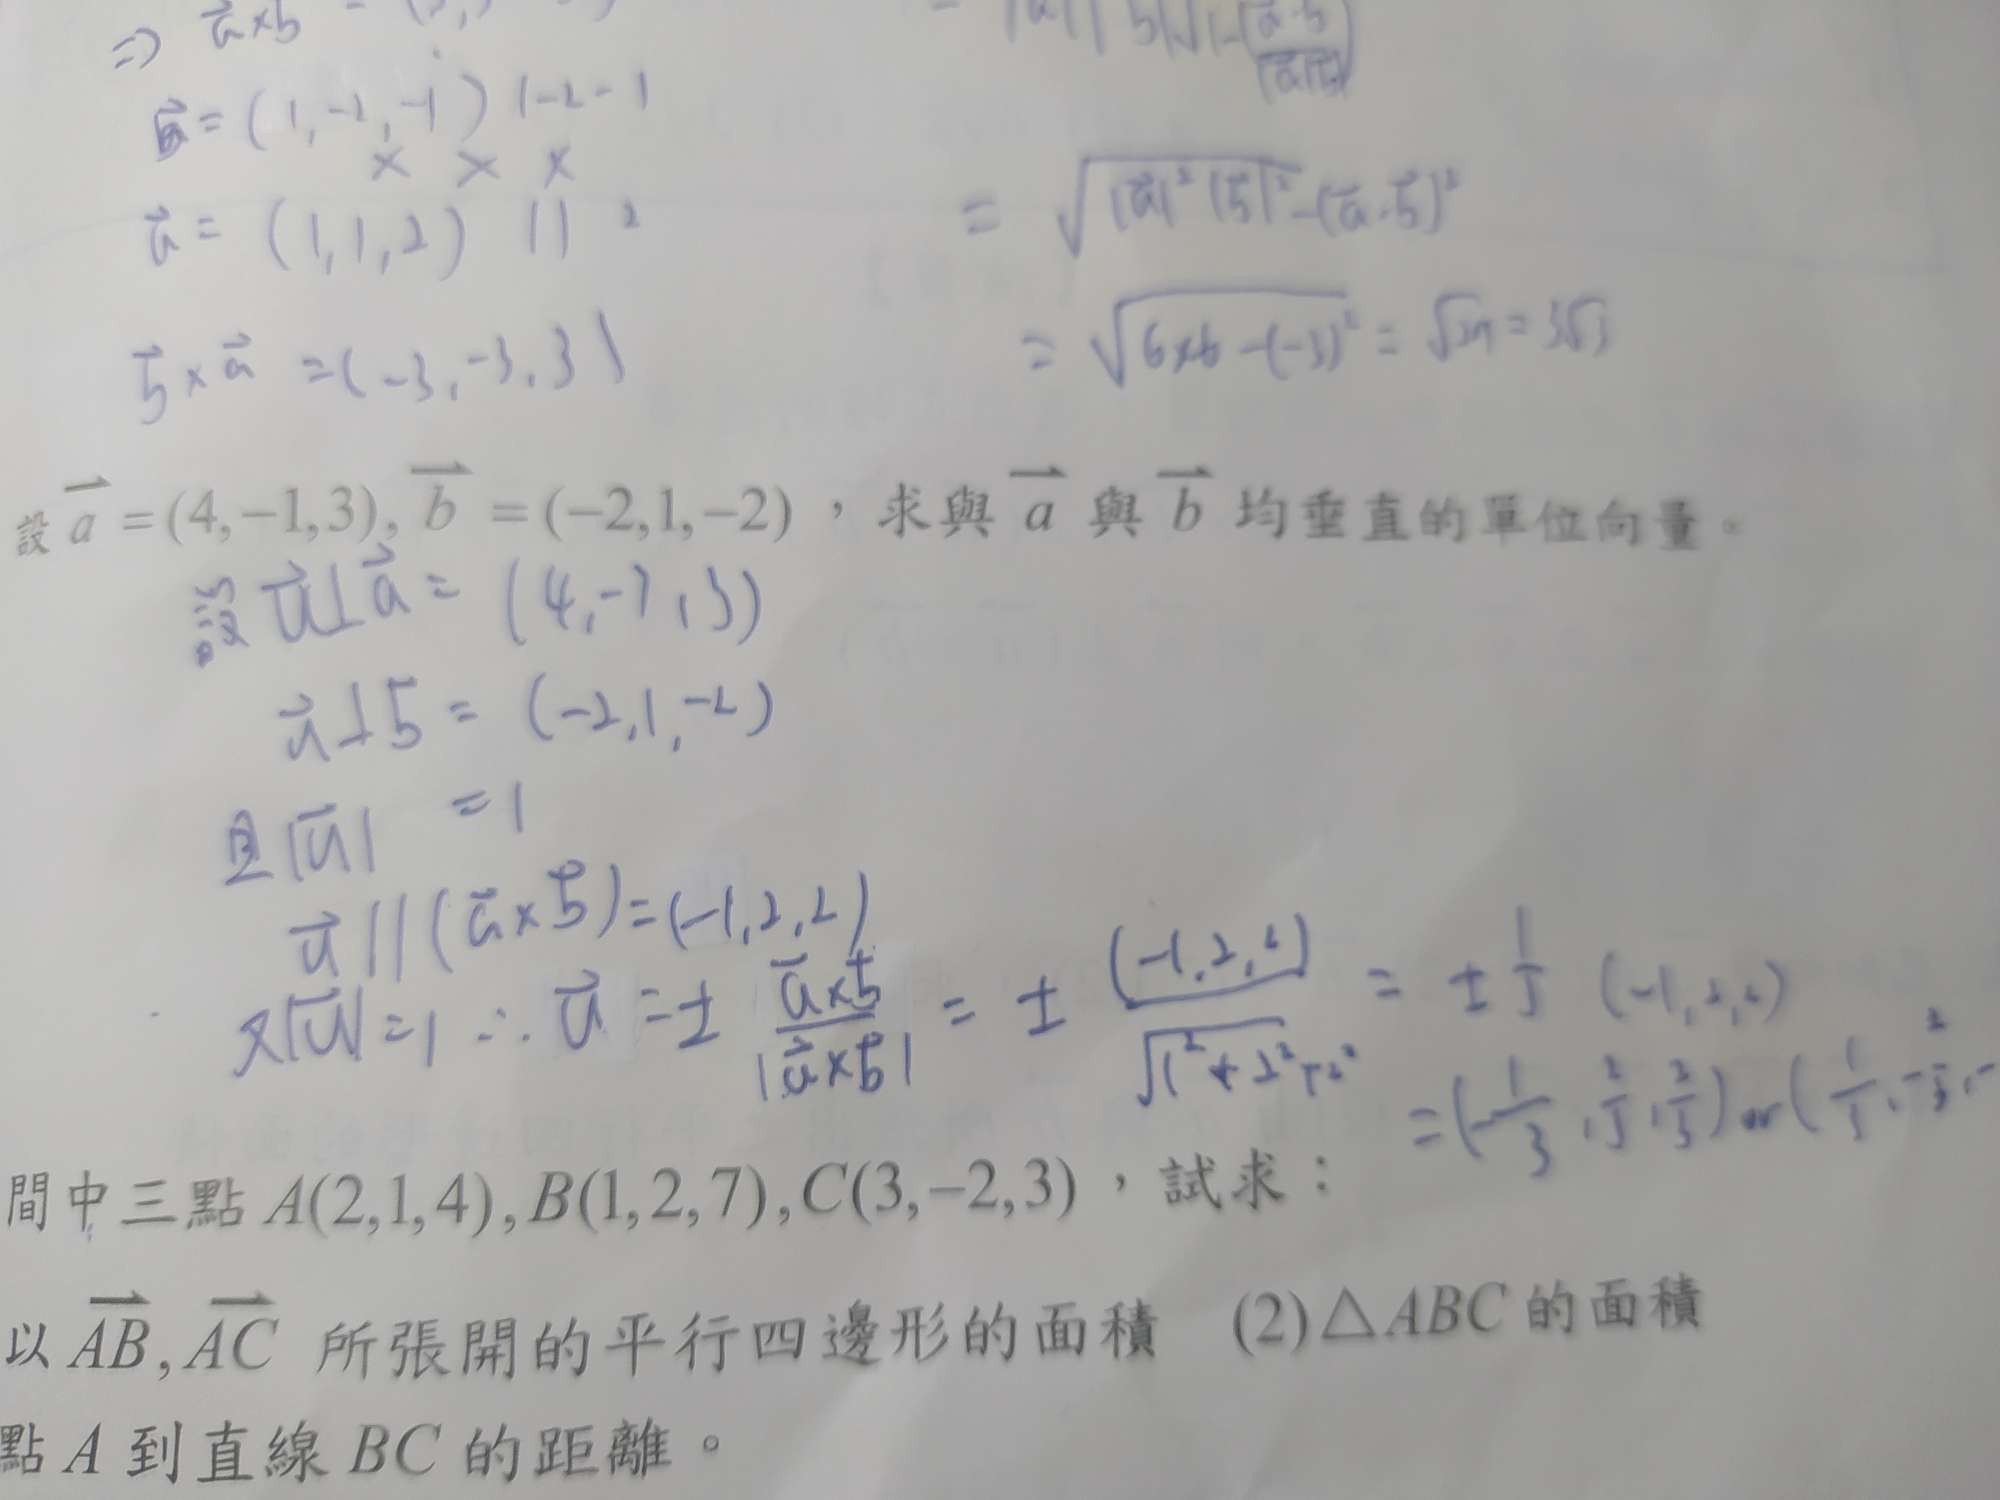 ⇒ a⃗×b⃗
b⃗ = (1,-2,-1) 1 -2 -1
× × ×
a⃗ = (1,1,2) 1 1 2
b⃗×a⃗ = (-3,-3,3)
= √(|a⃗|²|b⃗|²-(a⃗·b⃗)²)
= √(6×6-(-3)²) = √27 = 3√3
設 a⃗ = (4,−1,3), b⃗ = (−2,1,−2)，求與 a⃗ 與 b⃗ 均垂直的單位向量。
設 u⃗⊥a⃗ = (4,-1,3)
u⃗⊥b⃗ = (-2,1,-2)
且|u⃗| = 1
u⃗ // (a⃗×b⃗) = (-1,2,2)
又|u⃗|=1 ∴ u⃗ = ± a⃗×b⃗/|a⃗×b⃗| = ± (-1,2,2)/√(1²+2²+2²) = ± 1/3 (-1,2,2)
= (-1/3, 2/3, 2/3) or (1/3, -2/3, -
間中三點 A(2,1,4), B(1,2,7), C(3,−2,3)，試求：
以 AB⃗, AC⃗ 所張開的平行四邊形的面積 (2)△ABC 的面積
點 A 到直線 BC 的距離。